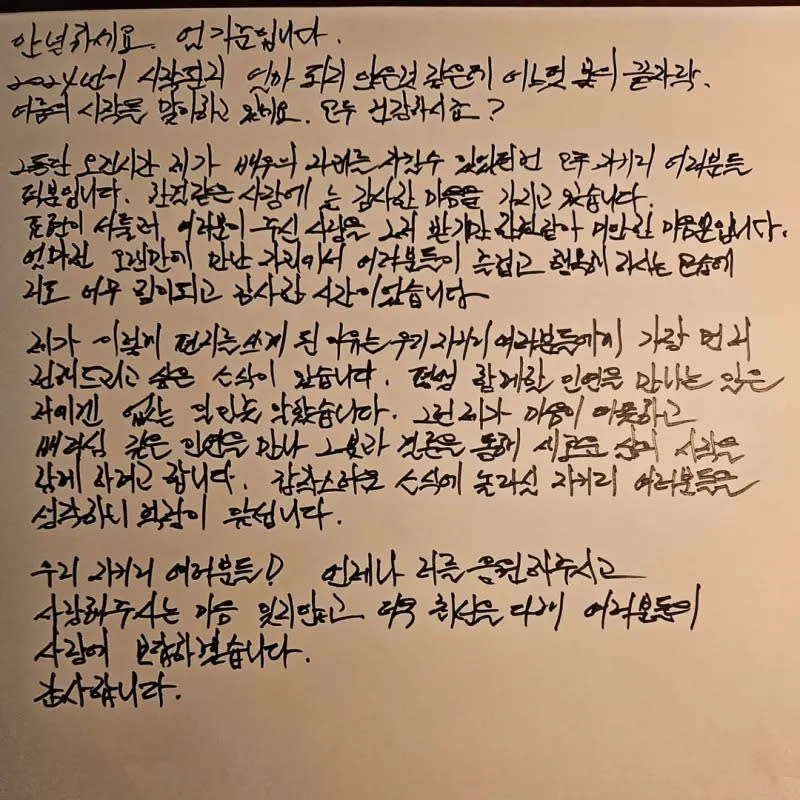 안녕하세요. 엄기준입니다.
2024년이 시작된지 얼마 되지 않은것 같은데 어느덧 봄의 끝자락.
여름의 시작을 맞이하고 있네요. 모두 건강하시죠?
그동안 오랜시간 제가 배우의 자리를 지킬수 있었던건 모두 자키리 여러분들
덕분입니다. 한결같은 사랑에 늘 감사한 마음을 가지고 있습니다.
표현이 서툴러 여러분이 주신 사랑을 그저 받기만 한것같아 미안한 마음뿐입니다.
얼마전 오랜만에 만난 자리에서 여러분들이 즐겁고 행복해 하시는 모습에
저도 너무 힘이되고 감사한 시간이었습니다
제가 이렇게 편지를 쓰게 된 이유는 우리 자키리 여러분들에게 가장 먼저
전해드리고 싶은 소식이 있습니다. 평생 함께할 인연을 만나는 일은
저에겐 없는 일인줄 알았습니다. 그런 제가 마음이 따뜻하고
배려심 깊은 인연을 만나 그분과 결혼을 통해 새로운 삶의 시작을
함께 하려고 합니다. 갑작스러운 소식에 놀라실 자키리 여러분들을
생각하니 회감이 듭니다.
우리 자키리 여러분들! 언제나 저를 응원해주시고
사랑해주시는 마음 잊지않고 더욱 최선을 다해 여러분들의
사랑에 보답하겠습니다.
감사합니다.